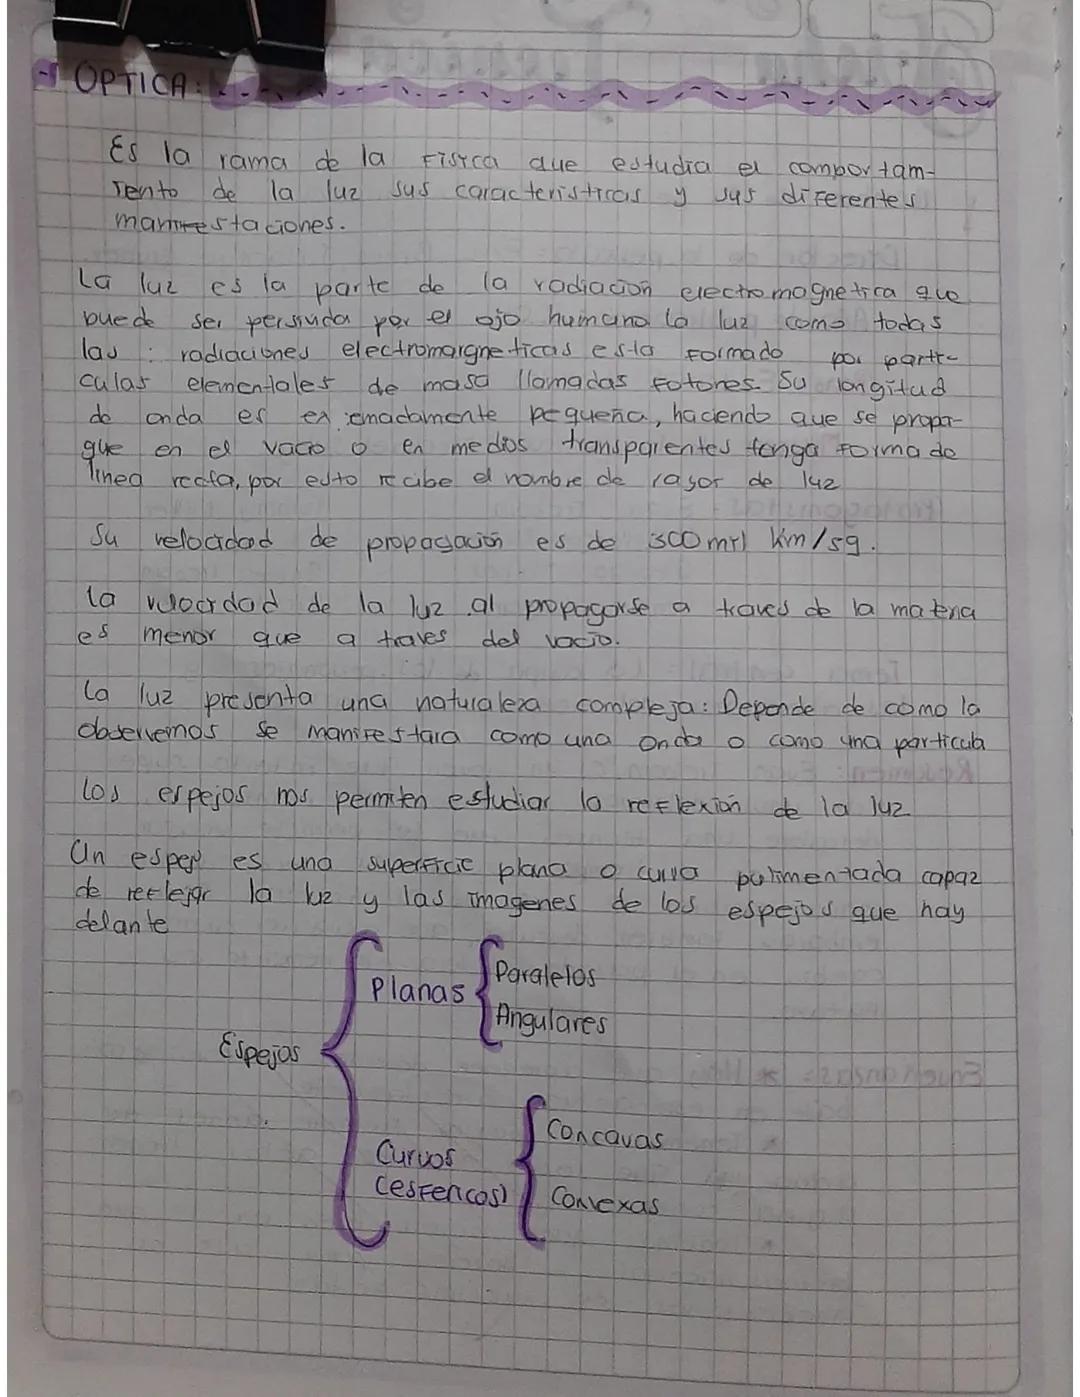 OPTICA:
Es la rama de la Fisica que estudia el comportam-
iento de la luz sus caracteristicas y sus diferentes
manifestaciones.
La luz es la parte de la radiacion electromagnetica que
puede ser persivida por el ojo humano la luz como todas
las : radiaciones electromargneticas esta Formado por parti-
culas elementales de masa llamadas Fotones. Su longitud
de onda es ex emadamente pequeña, haciendo que se propa-
gue en el vacio o en medios transparentes tenga Forma de
linea recta, por esto recibe el nombre de rayor de luz
Su velocidad de propagación es de 300 mil km/sg.
La velocidad de la luz al propagarse a traves de la materia
es menor que a traves del vacio.
La luz presenta una naturaleza compleja: Depende de como la
observemos se manifestara como una onda o como una particula
Los espejos nos permiten estudiar la reflexión de la luz
Un espejo es una superficie plana o curva pulimentada capaz
de reflejar la luz y las imagenes de los espejos que hay
delante
Planas
Paralelos
Angulares
Espejos
Curvos
(esFericos)
Concavas
Convexas